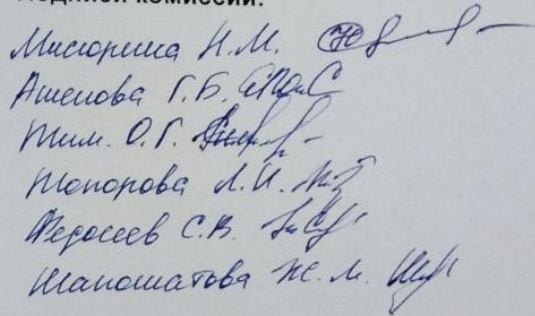 Подписи комиссии:
Мисюрина Н.М.
Ашенова Г.Б.
Тим. О.Г.
Топорова Л.И.
Федосеев С.В.
Жапошатова Ж.М.